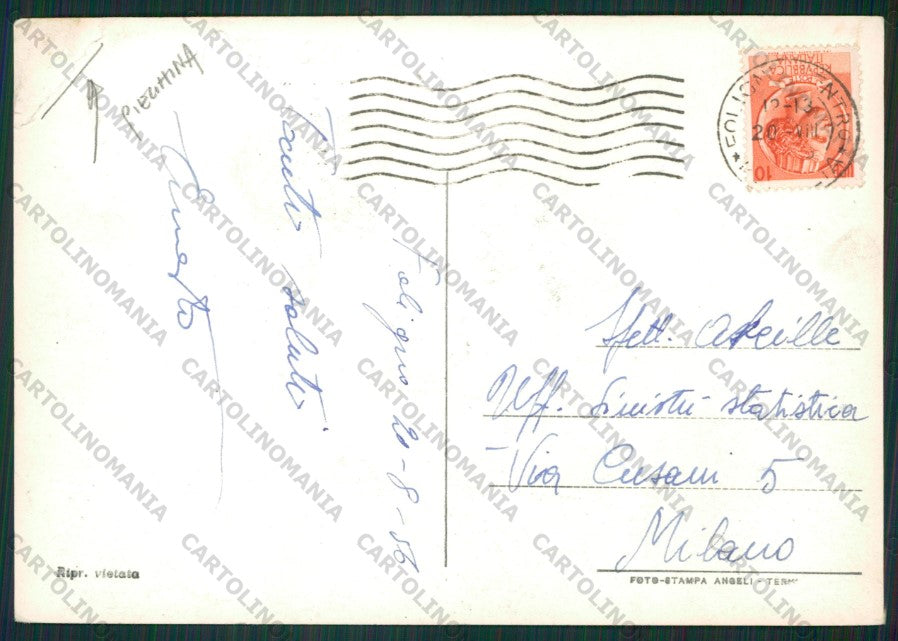 PIEGHINA
Foligno 20-8-56
Tanti saluti
Ernesto
Spett. Achille
Uff. Sinistri statistica
Via Cusani 5
Milano
Ripr. vietata
FOTO-STAMPA ANGELI - TERNI
FOLIGNO CENTRO
12-13
20 VIII
10
CARTOLINOMANIA